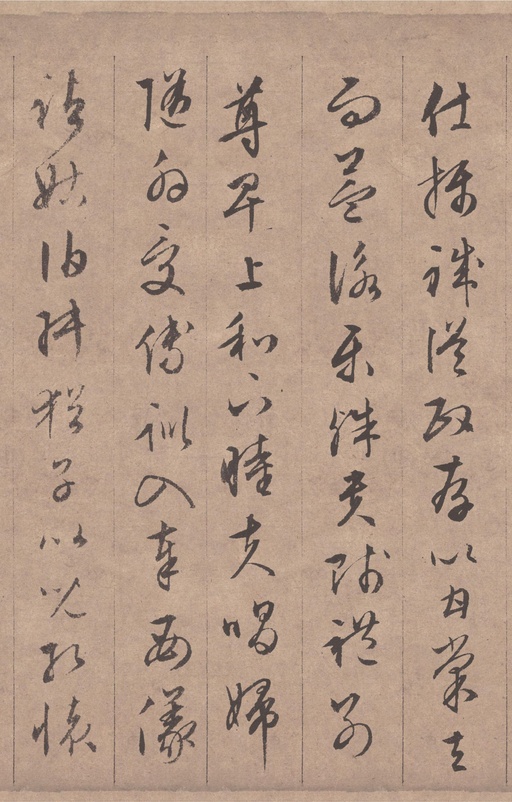 仕攝職從政存以甘棠去
而益詠樂殊貴賤禮別
尊卑上和下睦夫唱婦
隨外受傅訓入奉母儀
諸姑伯叔猶子比兒孔懷